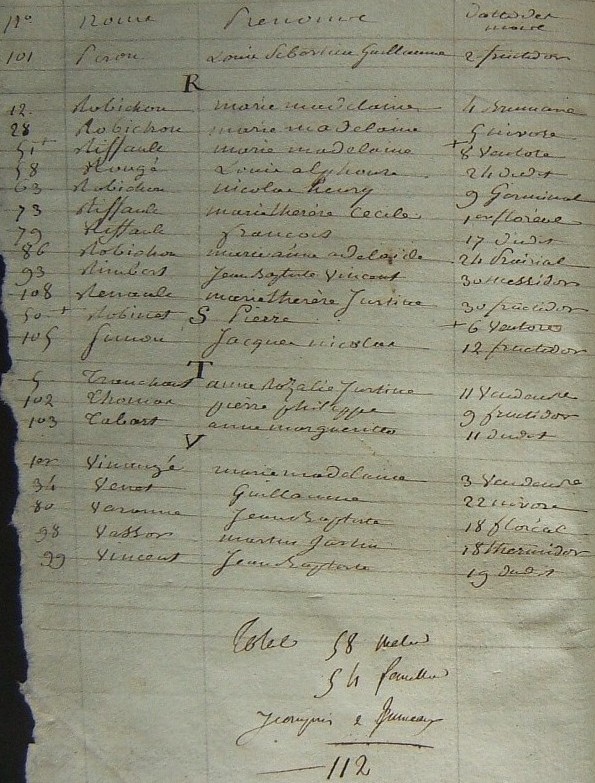 No Noms Prenoms Datte des
101 Piron Louis Sebastien Guillaume 2 fructidor
R
12. Robichon marie madelaine 4 Brumaire
28 Robichon marie madelaine 5 nivose
51+ Riffault marie madelaine + 8 Ventose
58 Rougé Louis alphonse 24 dudit
63 Robichon nicolas henry 9 Germinal
73 Riffault marie therèse Cecile 1er floreal
79 Riffault francois 17 dudit
86 Robichon marie anne adelaide 24 Prairial
93 Rimbert Jean Baptiste Vincent 30 messidor
108 Renault marie therèse Justine 30 fructidor
50+ Robinet Pierre + 6 Ventose
S
105 Simon Jacques nicolas 12 fructidor
T
5 Tranchant anne Rozalie Justine 11 Vendemre
102 Thomas pierre philippe 9 fructidor
103 Tabart anne marguerite 11 dudit
V
1er marie madelaine 3 Vendemre
34 Guillaume 22 nivose
80 Varenne Jean Baptiste 18 floréal
98 Vassor martin 18 thermidor
99 Vincent Jean Baptiste 19 dudit
Total 58 males
54 femelles
y compris 2 Jumeaux
112